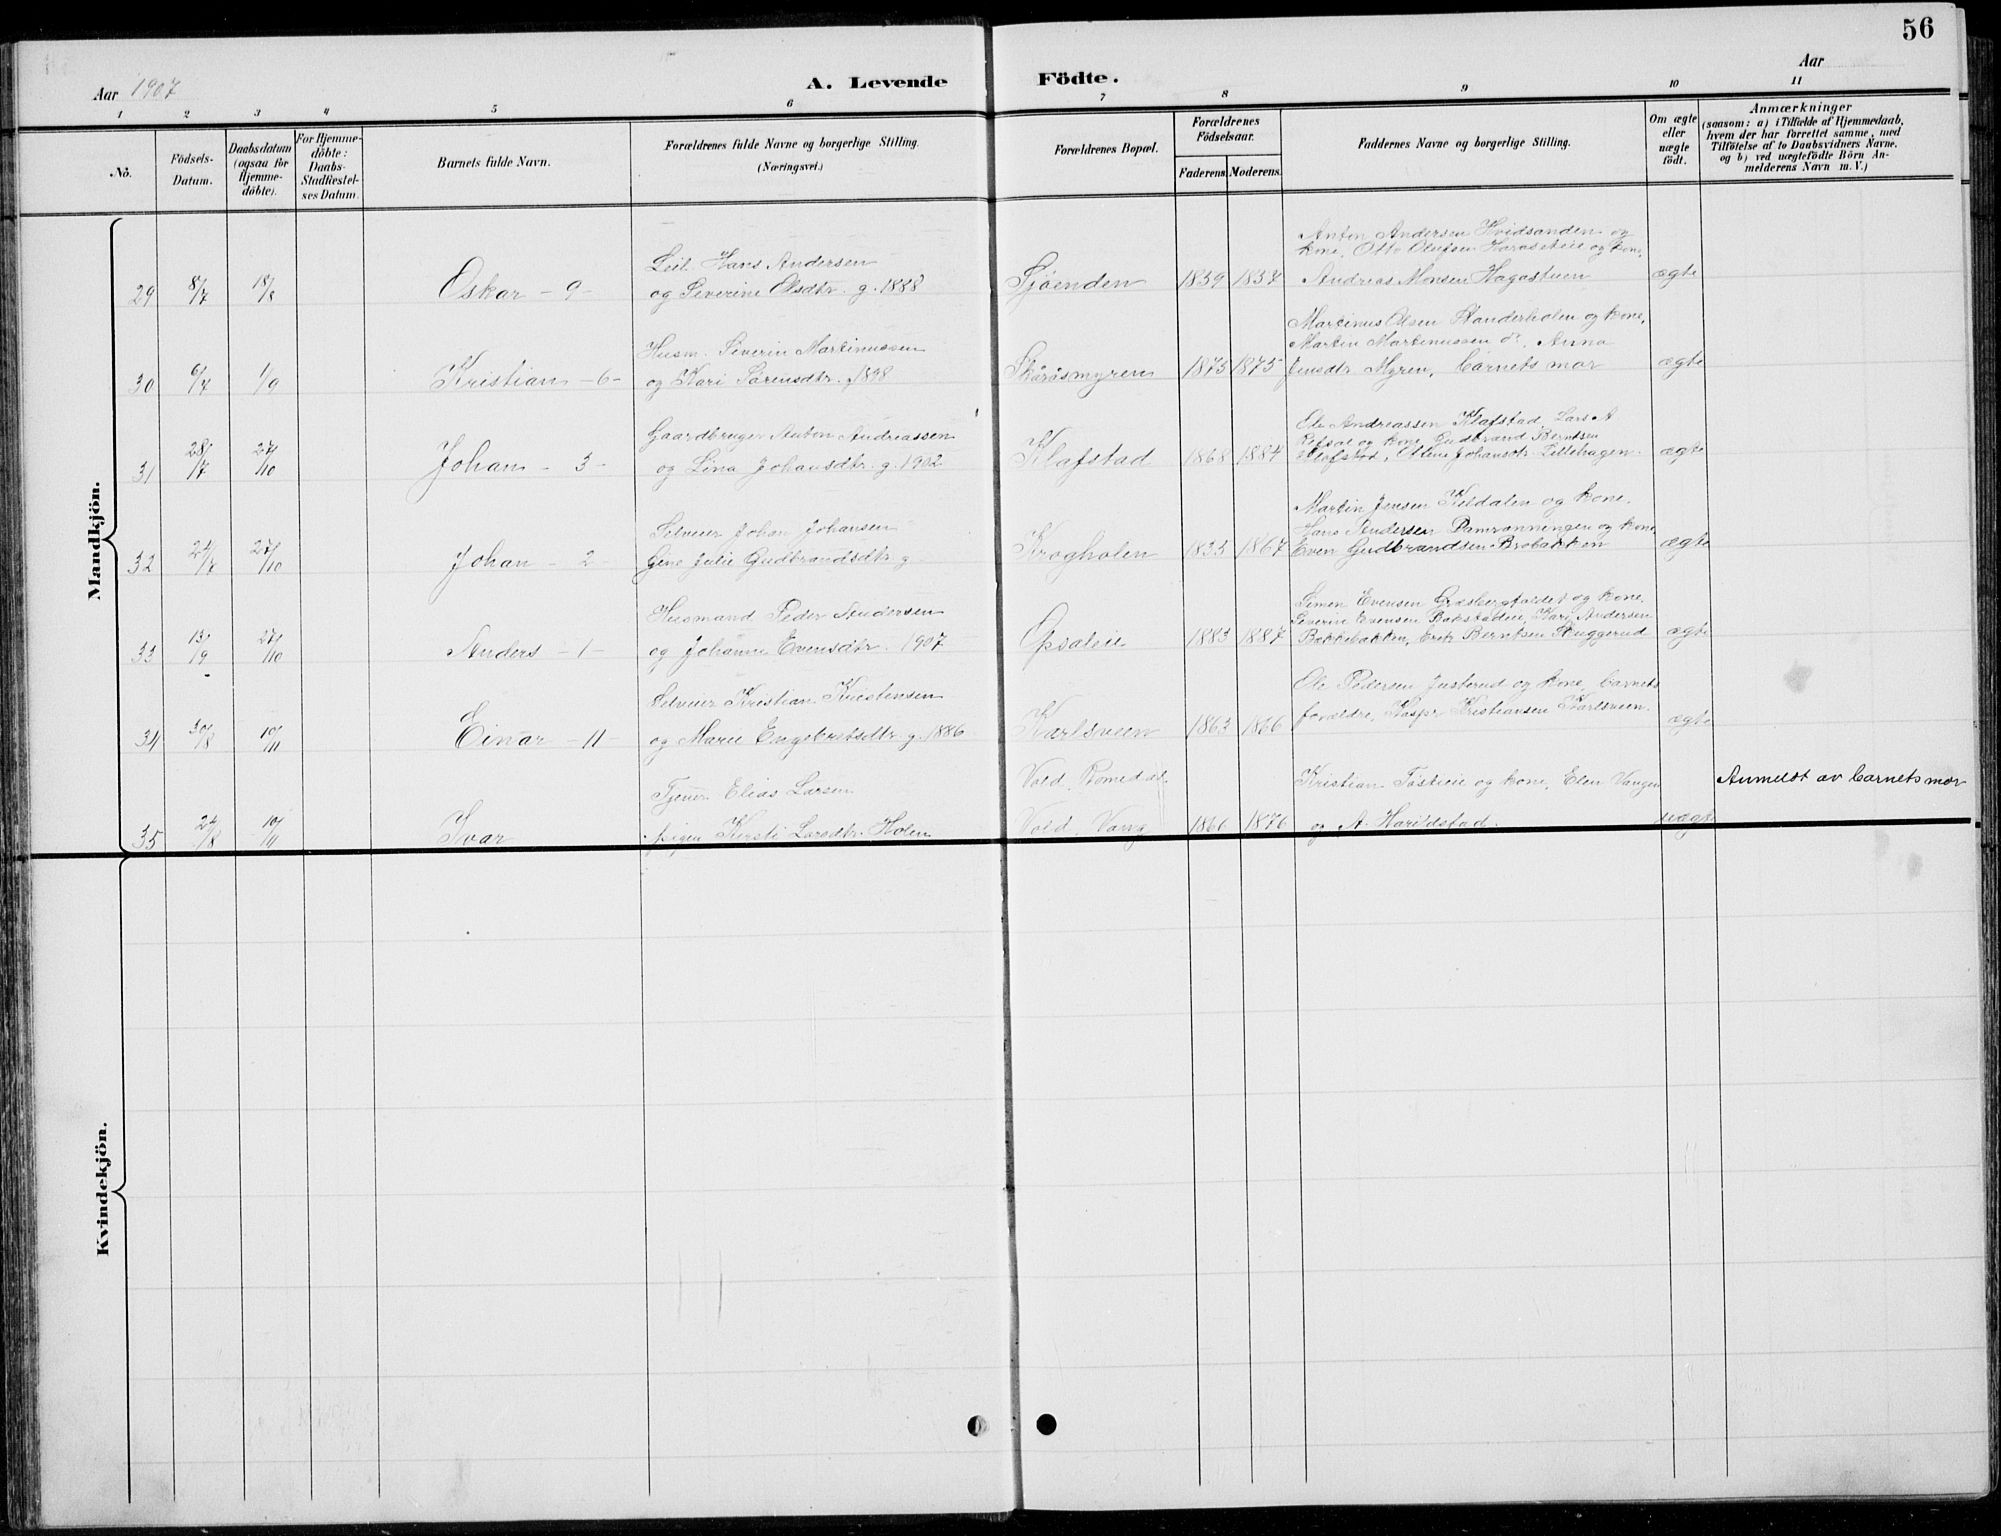 56
Aar 1907
A. Levende Fødte.
Aar
1 2 3 4 5 6 7 8 9 10 11
No.
Födsels-Datum.
Daabsdatum (ogsaa for Hjemme-döbte).
For Hjemme-döbte: Daabs-Stadfæstel-ses Datum.
Barnets fulde Navn.
Forældrenes fulde Navne og borgerlige Stilling.
(Næringsvei.)
Forældrenes Bopæl.
Forældrenes Födselsaar.
Faderens. Moderens.
Faddernes Navne og borgerlige Stilling.
Om ægte eller uægte födt.
Anmærkninger
(saasom: a) i Tilfælde af Hjemmedaab,
hvem der har forrettet samme, med
Tilföielse af to Daabsvidners Navne,
og b) ved uægtefödte Börn An-
melderens Navn m. V.)
Mandkjön.
Anton Andersen Hvidsanden og
Leil. Hans Andersen
kone, Otto Olufsen Haraseteie og kone,
29 8/7 18/8 Oskar - 9 - og Severine Olsdtr. g. 1888 Sjöenden 1859 Andreas Monsen Hagastuen ægte
Martinus Olsen Standerholen og kone,
Husm. Severin Martinussen
Martin Martinussen do, Anna
30 6/7 1/9 Kristian - 6 - og Kari Sörensdtr. 1898 Skäräsmyren 1875 1875 Jensdtr. Myren, barnets mor ægte
Ole Andreassen Klafstad, Lars A
Gaardbruger Anton Andreassen
og kone, Gudbrand Berntsen
31 28/7 27/10 Johan - 3 - og Lina Johansdtr. g. 1902 Klafstad 1868 1884 Klafstad, Johansdtr. Lillehagen. ægte
Martin Jensen Kildalen og kone.
Selveier Johan Johansen
Hans Andersen og kone,
32 24/7 27/10 Johan - 2 - Gine Julie Gudbrandsdtr. g. Krogholen 1867 Even Gudbrandsen Brobakken ægte
Simen Evensen og kone,
Husmand Peder Andersen
Severin Evensen Bakstadeie, Kari Andersen
33 13/9 27/10 Anders - 1 - og Johanne Evensdtr. 1907 Opsaleie 1883 1887 Bakkebakken, Berntsen ægte
Ole Pedersen Justerud og kone, barnets
Selveier Kristian Kristensen
34 30/8 10/11 Einar - 11 - og Marie Engebretsdtr. g. 1886 Karlsveen 1863 1866 forældre, Kaspr Kristiansen Karlsveen. ægte
Tjener Elias Larsen Vold, Romedal Kristian og kone, Elen Vangen Anmeldt av barnets mor
35 24/8 10/11 Ivar pigen Kersti Larsdtr. Holen Vold, Vang 1866 1876 og A. Harildstad. uægte
Kvindekjön.